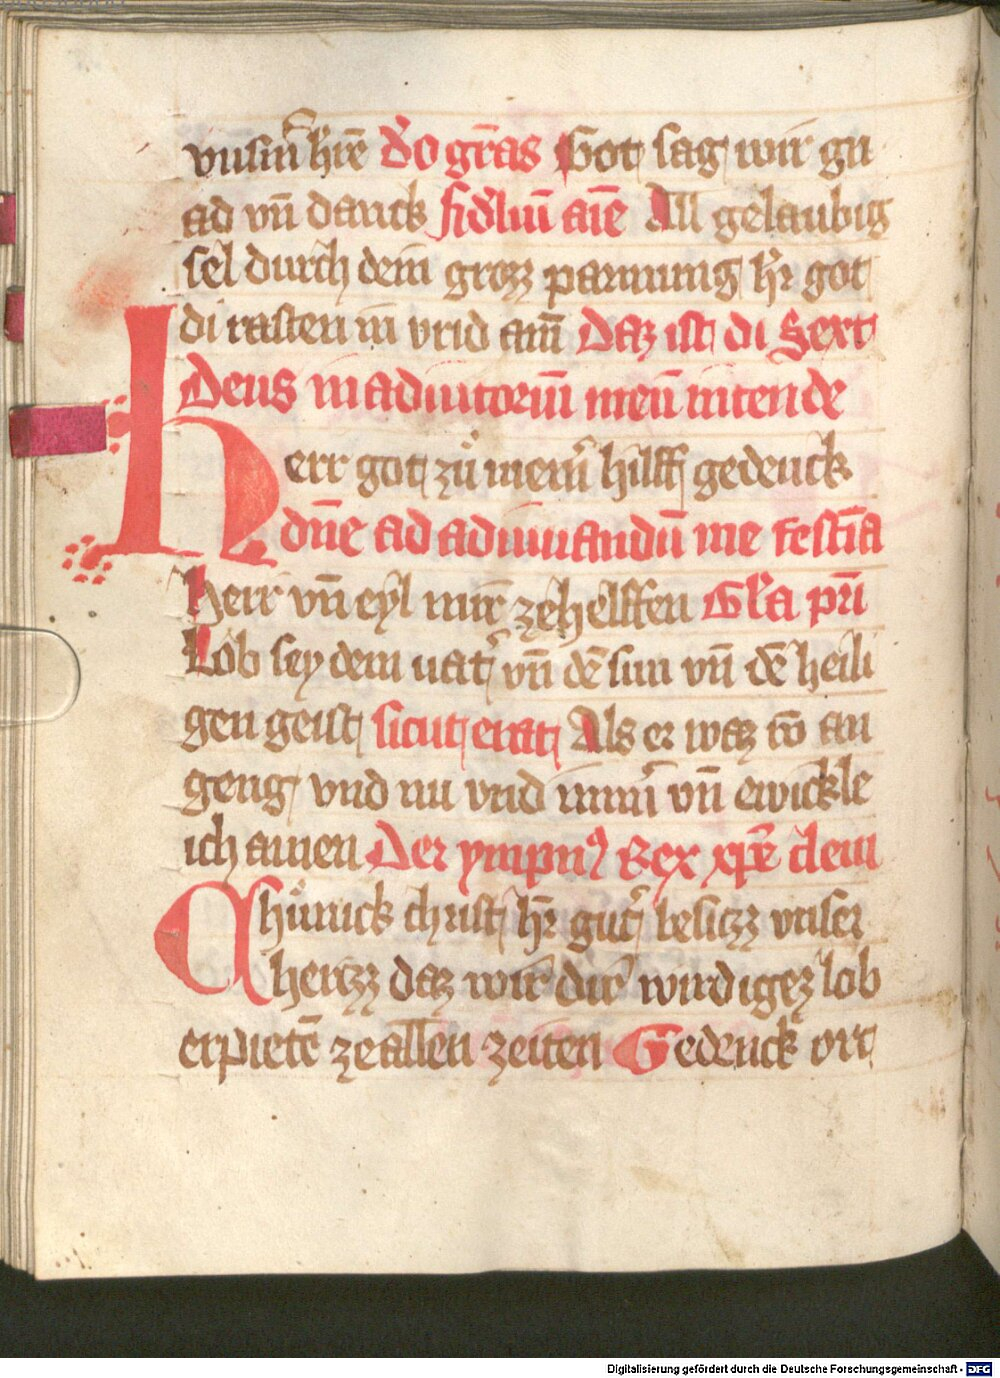 vnsm̄ h̄re d̓o gr̄as Got sag wir gn
ad vn̄ danck fid̓liū aīe All gelaubig
sel durch dein grozz parmung hʼr got
di rasten in vrid am̄ Daz ist di Sext
Deus in adiutoriū meū intende
Herr got zů meinʼ hilff gedenck
dn̄e ad adiuuandū me festīa
herr vn̄ eyl mir zehelffen Glʼa pr̄i
Lob sey dem vatʼ vn̄ dē sun vn̄ dē heili
gen geist sicut erat Als er waz vō an
geng vnd nu vnd immʼ vn̄ ewickle
ich amen Der ympnꝰ Rex xp̄e clem
Chünick christ hʼr gutʼ besitzz vnser
hertzz daz wir dir wirdigez lob
erpietē zeallen zeiten Gedenck ort
Digitalisierung gefördert durch die Deutsche Forschungsgemeinschaft - DFG